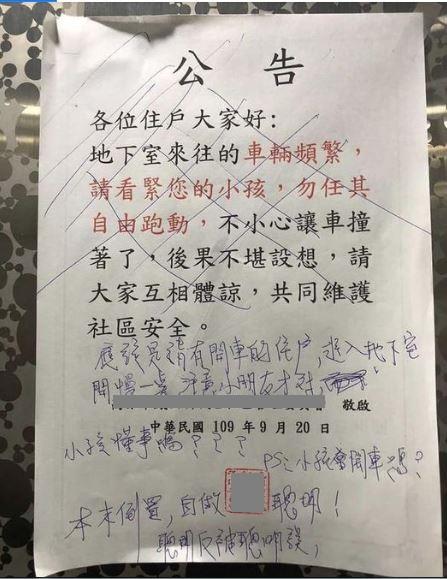 公告
各位住戶大家好:
地下室來往的車輛頻繁,
請看緊您的小孩,勿任其
自由跑動,不小心讓車撞
著了,後果不堪設想,請
大家互相體諒,共同維護
社區安全。
應該是請有開車的住戶,進入地下室
開慢一點 注意小朋友才對
敬啟
中華民國 109 年 9 月 20 日
小孩懂事嗎???
PS:小孩會開車嗎?
本末倒置,自做聰明!
聰明反被聰明誤,